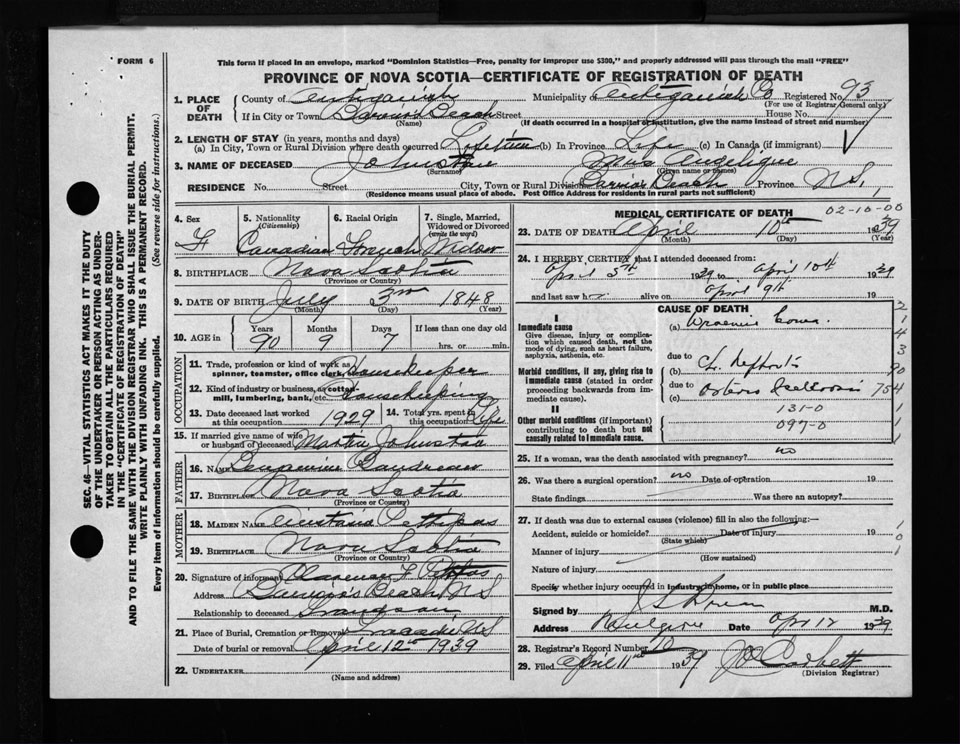 FORM 6
This form if placed in an envelope, marked "Dominion Statistics—Free, penalty for improper use $300," and properly addressed will pass through the mail "FREE"
PROVINCE OF NOVA SCOTIA—CERTIFICATE OF REGISTRATION OF DEATH
1. PLACE OF DEATH
County of Antigonish Municipality of Antigonish Co Registered No. 93
(For use of Registrar General only)
If in City or Town Beach Street House No.
(Name) (If death occurred in a hospital or institution, give the name instead of street and number)
2. LENGTH OF STAY (in years, months and days)
(a) In City, Town or Rural Division where death occurred Lifetime (b) In Province Life (c) In Canada (if immigrant)
3. NAME OF DECEASED Johnstone Mrs Angelique
(Surname) (Given name or names)
RESIDENCE No. Street City, Town or Rural Division Beach Province N.S.
(Residence means usual place of abode. Post Office Address for residents in rural parts not sufficient)
4. Sex
F
5. Nationality
(Citizenship)
Canadian
6. Racial Origin
French
7. Single, Married, Widowed or Divorced
(write the word)
Widow
8. BIRTHPLACE Nova Scotia
(Province or Country)
9. DATE OF BIRTH July 3rd 1848
(Month) (Day) (Year)
10. AGE in
Years Months Days If less than one day old
90 9 7 hrs. or min.
OCCUPATION
11. Trade, profession or kind of work as spinner, teamster, office clerk, Housekeeper
12. Kind of industry or business, as cotton-mill, lumbering, bank, etc. Housekeeping
13. Date deceased last worked at this occupation 1929
14. Total yrs. spent in this occupation Life
15. If married give name of wife or husband of deceased Johnstone
FATHER
16. NAME Boudreau
17. BIRTHPLACE Nova Scotia
(Province or Country)
MOTHER
18. MAIDEN NAME Pettipas
19. BIRTHPLACE Nova Scotia
(Province or Country)
20. Signature of informant F
Address Beach N S
Relationship to deceased Grandson
21. Place of Burial, Cremation or Removal Tracadie N S
Date of burial or removal April 12th 1939
22. UNDERTAKER
(Name and address)
MEDICAL CERTIFICATE OF DEATH
02-10-00
23. DATE OF DEATH April 10th 1939
(Month) (Day) (Year)
24. I HEREBY CERTIFY that I attended deceased from:
April 5th 1939 to April 10th 1939
and last saw h alive on April 9th 19
CAUSE OF DEATH
I
Immediate cause
Give disease, injury or complication which caused death, not the mode of dying, such as heart failure, asphyxia, asthenia, etc.
(a) Uraemic Coma
Morbid conditions, if any, giving rise to immediate cause (stated in order proceeding backwards from immediate cause).
due to
(b) Ch. Nephritis
due to
(c)
131-0
II
Other morbid conditions (if important) contributing to death but not causally related to immediate cause.
097-0
25. If a woman, was the death associated with pregnancy? no
26. Was there a surgical operation? no Date of operation 19
State findings Was there an autopsy?
27. If death was due to external causes (violence) fill in also the following:—
Accident, suicide or homicide? Date of injury 19
(State which)
Manner of injury
(How sustained)
Nature of injury
Specify whether injury occurred in industry, in home, or in public place
Signed by M.D.
Address Date Apr 12 1939
28. Registrar's Record Number
29. Filed April 11 1939 Corbett
(Division Registrar)
SEC. 46—VITAL STATISTICS ACT MAKES IT THE DUTY
OF THE UNDERTAKER OR PERSON ACTING AS UNDER-
TAKER TO OBTAIN ALL THE PARTICULARS REQUIRED
IN THE "CERTIFICATE OF REGISTRATION OF DEATH"
AND TO FILE THE SAME WITH THE DIVISION REGISTRAR WHO SHALL ISSUE THE BURIAL PERMIT.
WRITE PLAINLY WITH UNFADING INK. THIS IS A PERMANENT RECORD.
Every item of information should be carefully supplied. (See reverse side for instructions.)